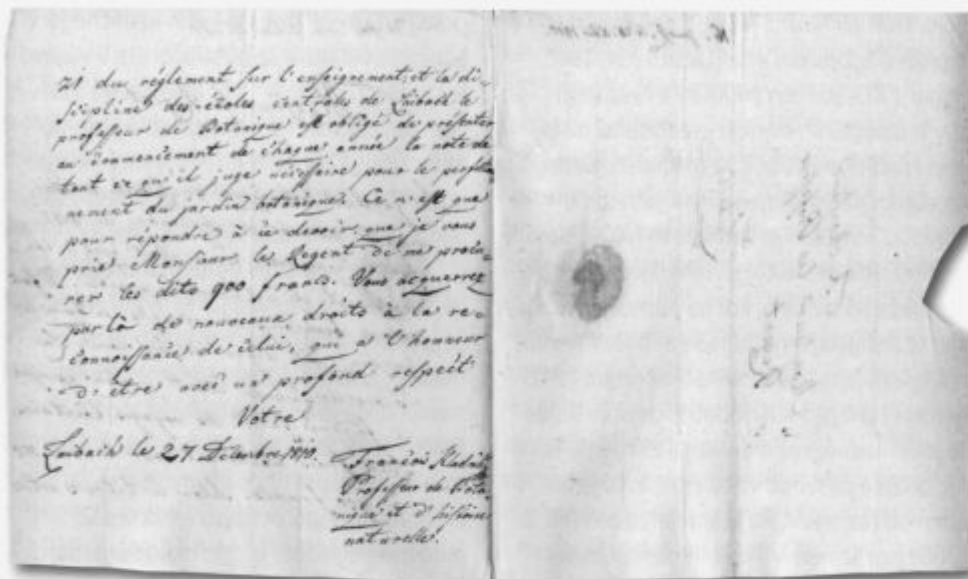 21 du réglement sur l'enseignement et la di-
scipline des écoles centrales de Laibach le
professeur de Botanique est obligé de présenter
au commencement de chaque année la note de
tout ce qu'il juge nécessaire pour le perfecti-
nement du jardin botanique. Ce n'est que
pour répondre à ce devoir, que je vous
prie Monsieur le Regent de me procu-
rer les dits 900 francs. Vous acquerrez
par là de nouveaux droits à la re-
connoissance de celui, qui a l'honneur
d'etre avec un profond respect
Votre
Laibach le 27 Decembre 1810.
François Hladnik
Professeur de Bota-
nique et d'histoire
naturelle.